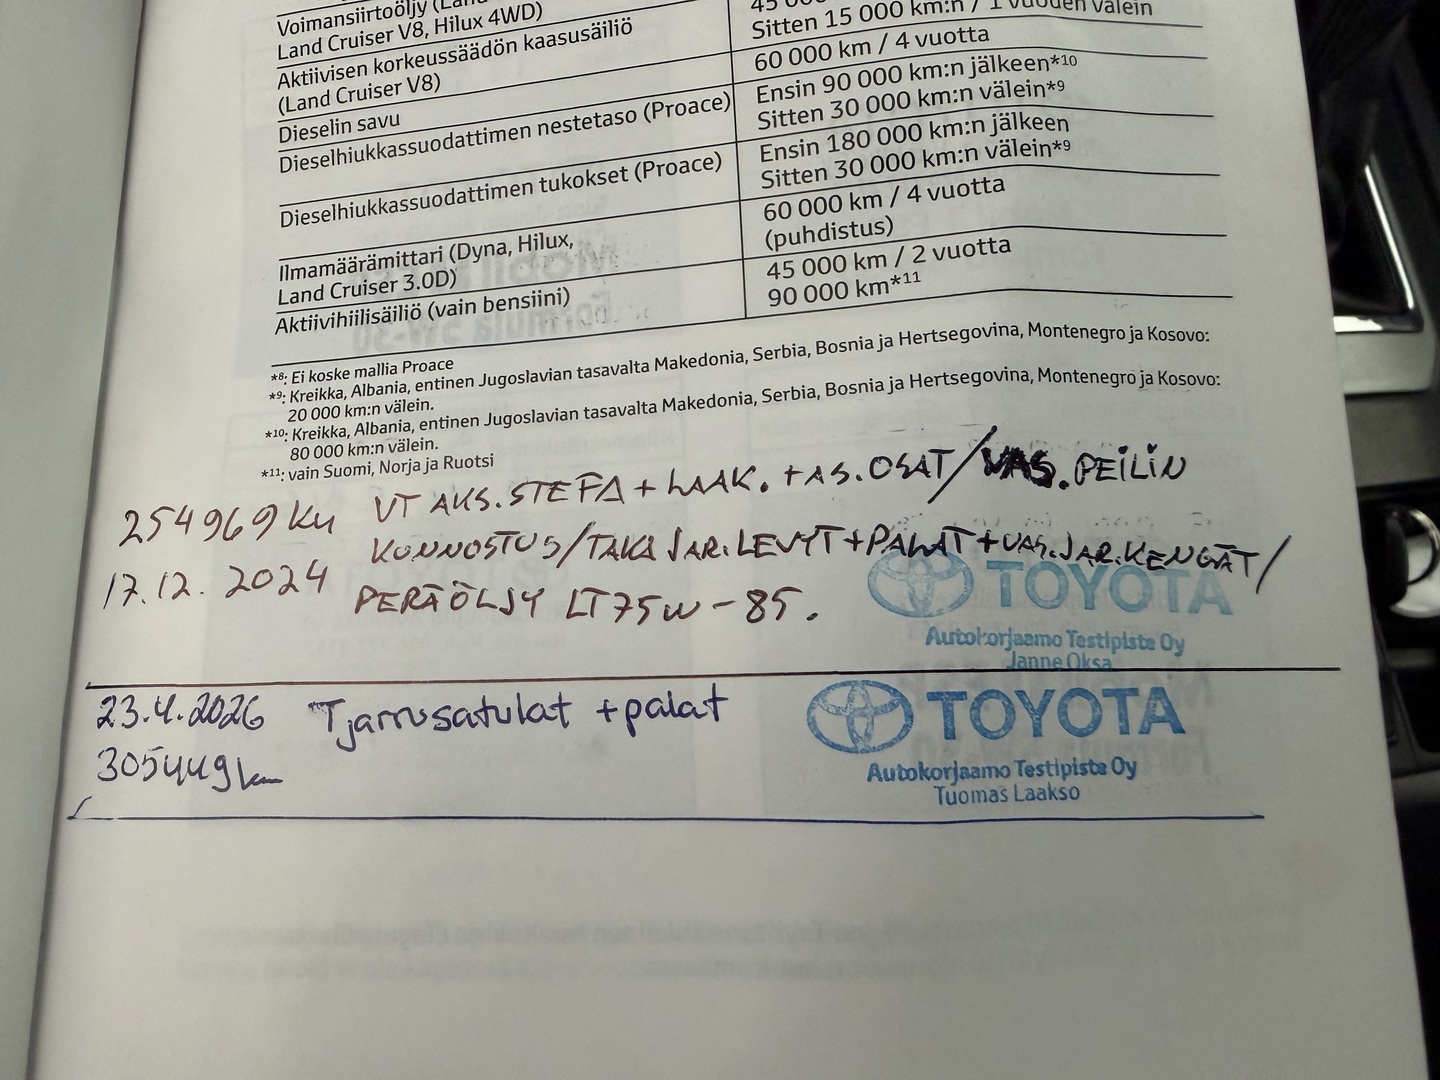 Voimansiirtoöljy (Land
Land Cruiser V8, Hilux 4WD)
45 000
Sitten 15 000 km:n / 1 vuoden välein
Aktiivisen korkeussäädön kaasusäiliö
(Land Cruiser V8)
60 000 km / 4 vuotta
Dieselin savu
Ensin 90 000 km:n jälkeen*10
Sitten 30 000 km:n välein*9
Dieselhiukkassuodattimen nestetaso (Proace)
Ensin 180 000 km:n jälkeen
Sitten 30 000 km:n välein*9
Dieselhiukkassuodattimen tukokset (Proace)
60 000 km / 4 vuotta
(puhdistus)
Ilmamäärämittari (Dyna, Hilux,
Land Cruiser 3.0D)
45 000 km / 2 vuotta
90 000 km*11
Aktiivihiilisäiliö (vain bensiini)
*8: Ei koske mallia Proace
*9: Kreikka, Albania, entinen Jugoslavian tasavalta Makedonia, Serbia, Bosnia ja Hertsegovina, Montenegro ja Kosovo:
20 000 km:n välein.
*10: Kreikka, Albania, entinen Jugoslavian tasavalta Makedonia, Serbia, Bosnia ja Hertsegovina, Montenegro ja Kosovo:
80 000 km:n välein.
*11: vain Suomi, Norja ja Ruotsi
254969 KM VT AKS.STEFA + LAAK. + AS.OSAT/VAS.PEILIN
17.12.2024 KUNNOSTUS/TAKA JAR.LEVYT+PALAT+VAS.JAR.KENGÄT/
PERÄÖLJY LT75W-85.
TOYOTA
Autokorjaamo Testipiste Oy
Janne Oksa
23.4.2026 Tjarrusatulat + palat
305449 km
TOYOTA
Autokorjaamo Testipiste Oy
Tuomas Laakso